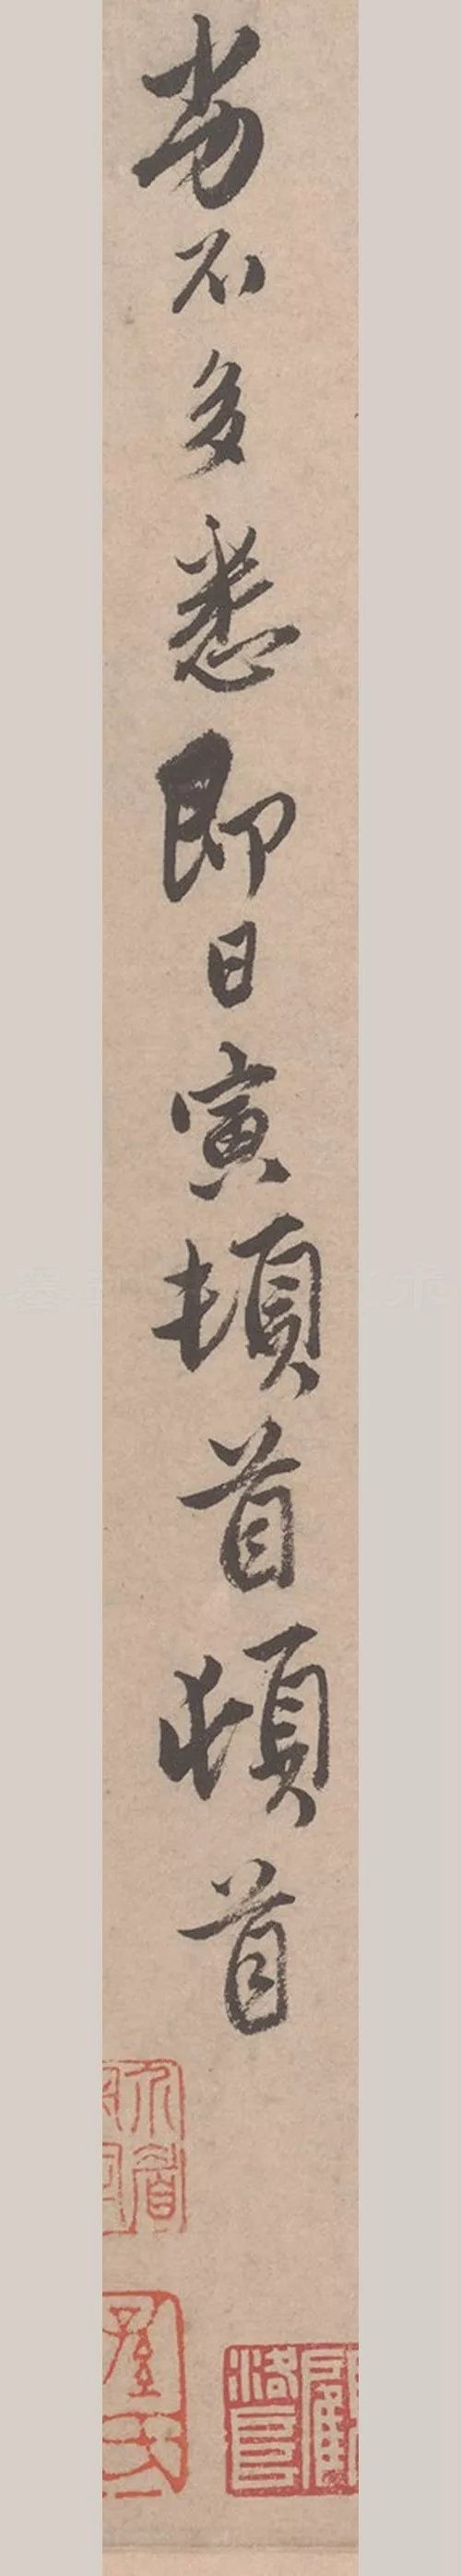 劣不多悉即日寅頓首頓首